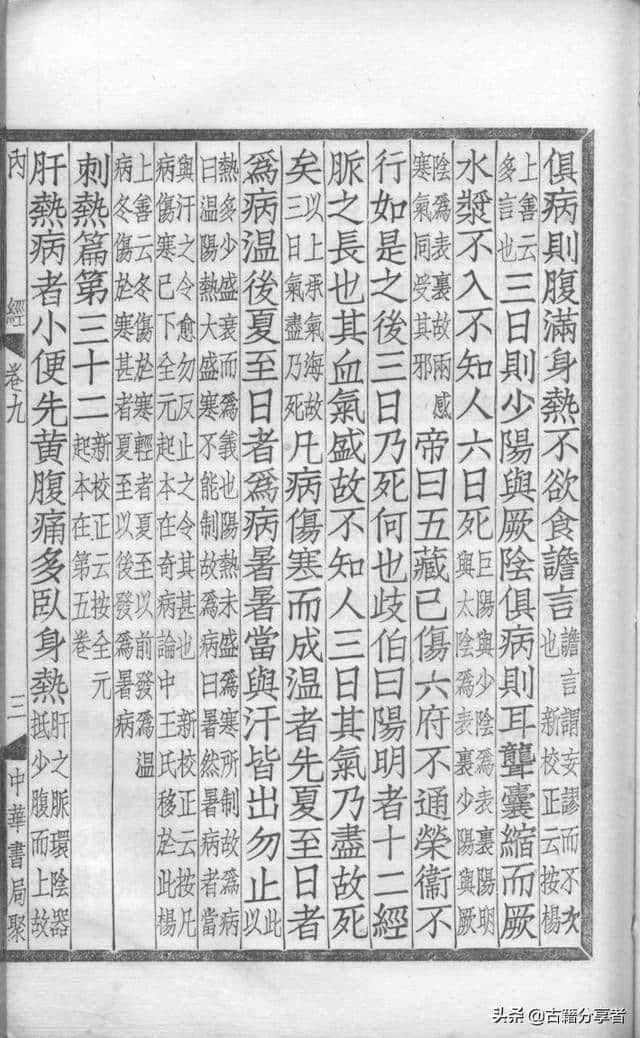 俱病則腹滿身熱不欲食譫言譫言謂妄謬而不次也新校正云按楊
上善云多言也三日則少陽與厥陰俱病則耳聾囊縮而厥
水漿不入不知人六日死巨陽與少陰爲表裏陽明與太陰爲表裏少陽與厥
陰爲表裏故兩感寒氣同受其邪帝曰五藏已傷六府不通榮衞不
行如是之後三日乃死何也歧伯曰陽明者十二經
脈之長也其血氣盛故不知人三日其氣乃盡故死
矣以上承氣海故三日氣盡乃死凡病傷寒而成温者先夏至日者
爲病温後夏至日者爲病暑暑當與汗皆出勿止此以
熱多少盛衰而爲義也陽熱未盛爲寒所制故爲病曰温陽熱大盛寒不能制故爲病曰暑然暑病者當
與汗之令愈勿反止之令其甚也新校正云按凡病傷寒已下全元起本在奇病論中王氏移於此楊
上善云冬傷於寒輕者夏至以前發爲温病冬傷於寒甚者夏至以後發爲暑病
刺熱篇第三十二新校正云按全元起本在第五卷
肝熱病者小便先黃腹痛多臥身熱肝之脈環陰器抵少腹而上故
內經 卷九 三 中華書局聚
头条 @古籍分享者